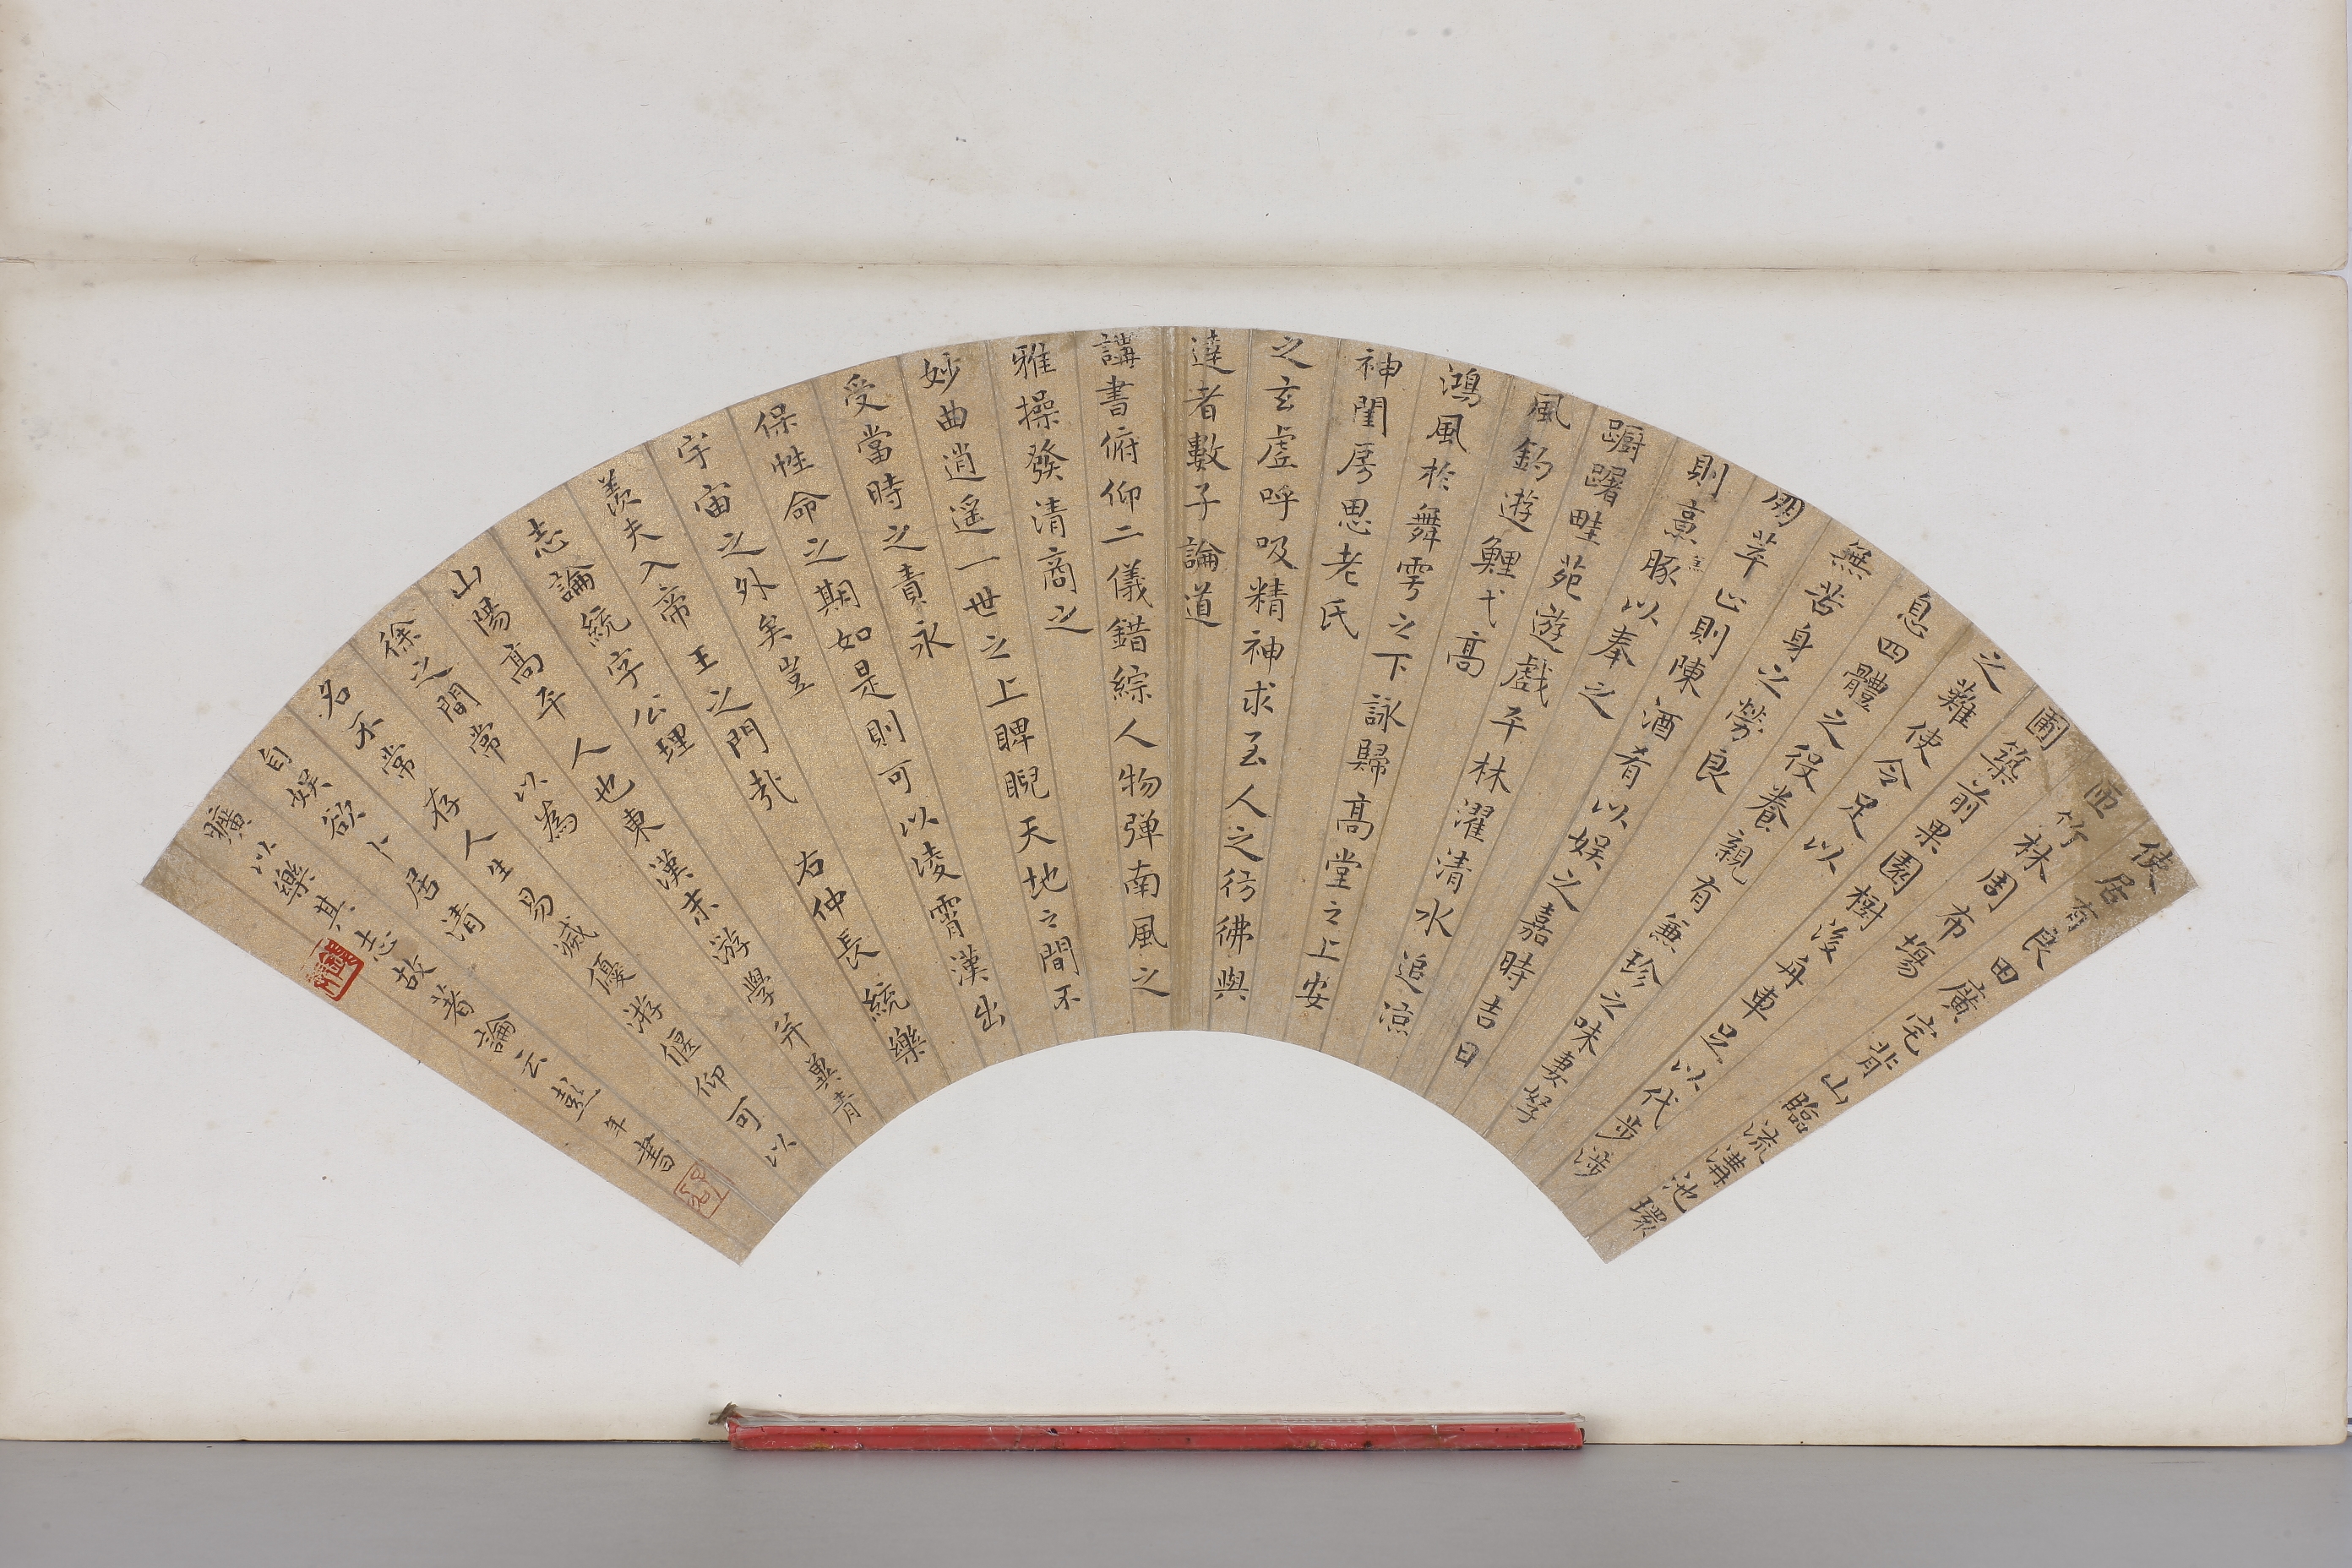 使居有良田廣宅背山臨流溝池環
匝竹林周布場
圃築前果園樹後舟車足以代步涉
之難使令足以
息四體之役養親有兼珍之味妻孥
無苦身之勞良
朋萃止則陳酒肴以娛之嘉時吉日
則烹羔豚以奉之
躕躇畦苑遊戲平林濯清水追涼
風釣遊鯉弋高
鴻風於舞雩之下詠歸高堂之上安
神閨房思老氏
之玄虛呼吸精神求至人之彷彿與
達者數子論道
講書俯仰二儀錯綜人物彈南風之
雅操發清商之
妙曲逍遥一世之上睥睨天地之間不
受當時之責永
保性命之期如是則可以凌霄漢出
宇宙之外矣豈
羨夫入帝王之門哉 右仲長統樂
志論統字公理
山陽高平人也東漢末游學并冀青
徐之間常以為
名不常存人生易滅優游偃仰可以
自娛欲卜居清
曠以樂其志故著論云彭年書